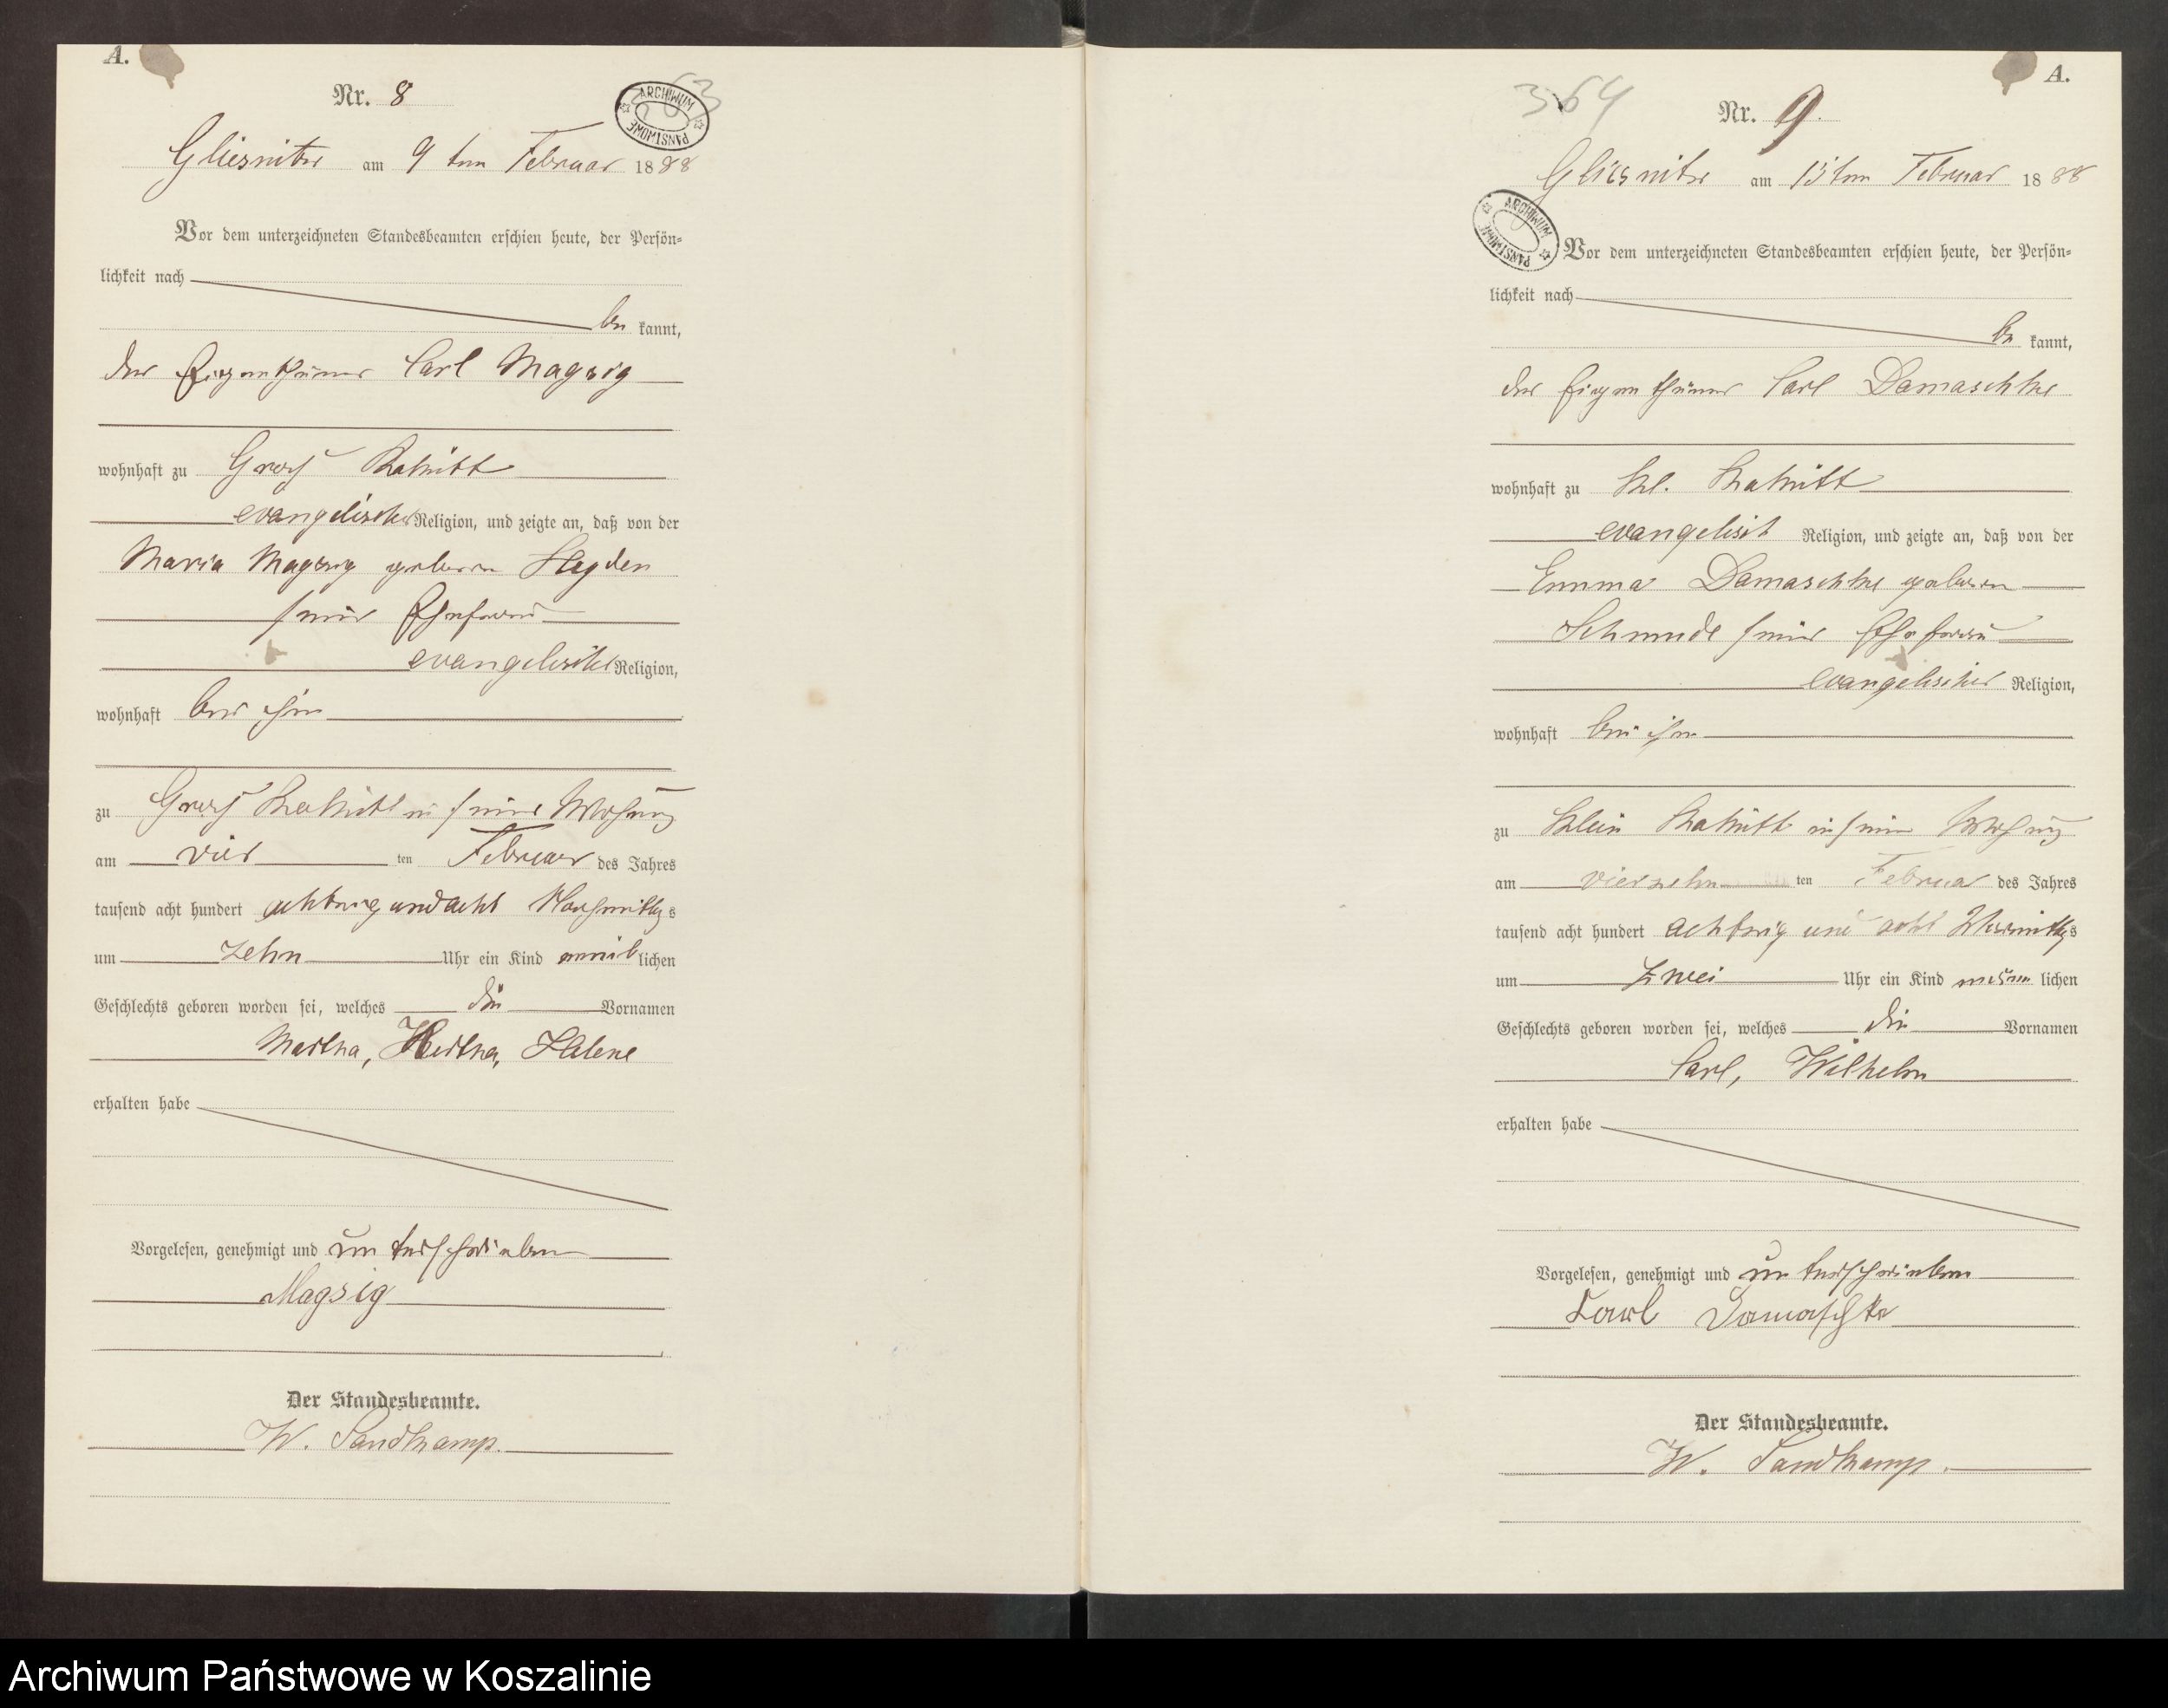 A.
Nr. 8
363
ARCHIWUM PAŃSTWOWE
Gliesnitz am 9 ten Februar 1888
Vor dem unterzeichneten Standesbeamten erschien heute, der Persön-
lichkeit nach
be kannt,
der Eigenthümer Carl Magsig
wohnhaft zu Groß Rakitt
evangelischer Religion, und zeigte an, daß von der
Maria Magsig geboren
seiner Ehefrau
evangelischer Religion,
wohnhaft bei ihm
zu Groß Rakitt in seiner Wohnung
am vier ten Februar des Jahres
tausend acht hundert achtzig und acht Nachmittags
um zehn Uhr ein Kind weib lichen
Geschlechts geboren worden sei, welches die Vornamen
Martha, Hertha, Helene
erhalten habe
Vorgelesen, genehmigt und unterschrieben
Magsig
Der Standesbeamte.
W. Sandkamp.
A.
364
Nr. 9.
Gliesnitz am 15 ten Februar 1888
ARCHIWUM PAŃSTWOWE
Vor dem unterzeichneten Standesbeamten erschien heute, der Persön-
lichkeit nach
be kannt,
der Eigenthümer Carl Damaschke
wohnhaft zu Kl. Rakitt
evangelisch Religion, und zeigte an, daß von der
Emma Damaschke geboren
Schmude seiner Ehefrau
evangelischer Religion,
wohnhaft bei ihm
zu Klein Rakitt in seiner Wohnung
am vierzehn ten Februar des Jahres
tausend acht hundert achtzig und acht Vormittags
um zwei Uhr ein Kind männ lichen
Geschlechts geboren worden sei, welches die Vornamen
Carl, Wilhelm
erhalten habe
Vorgelesen, genehmigt und unterschrieben
Carl Damaschke
Der Standesbeamte.
W. Sandkamp.
Archiwum Państwowe w Koszalinie